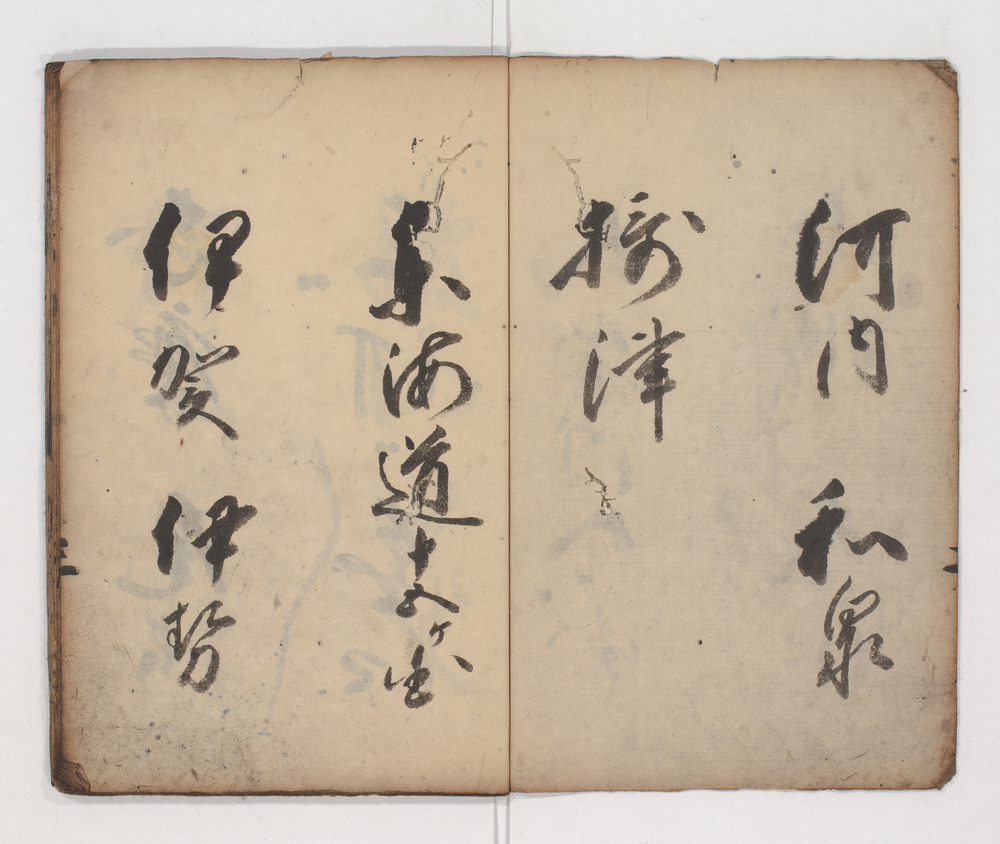 河内 和泉
摂津
東海道十五ケ国
伊賀 伊勢